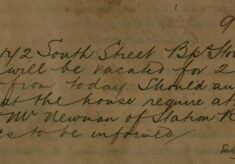 9
1/2 South Street Bp. Sto
will be vacated for 2
from today. Should an
at the house require at
Mr Newman of Station R
to be informed